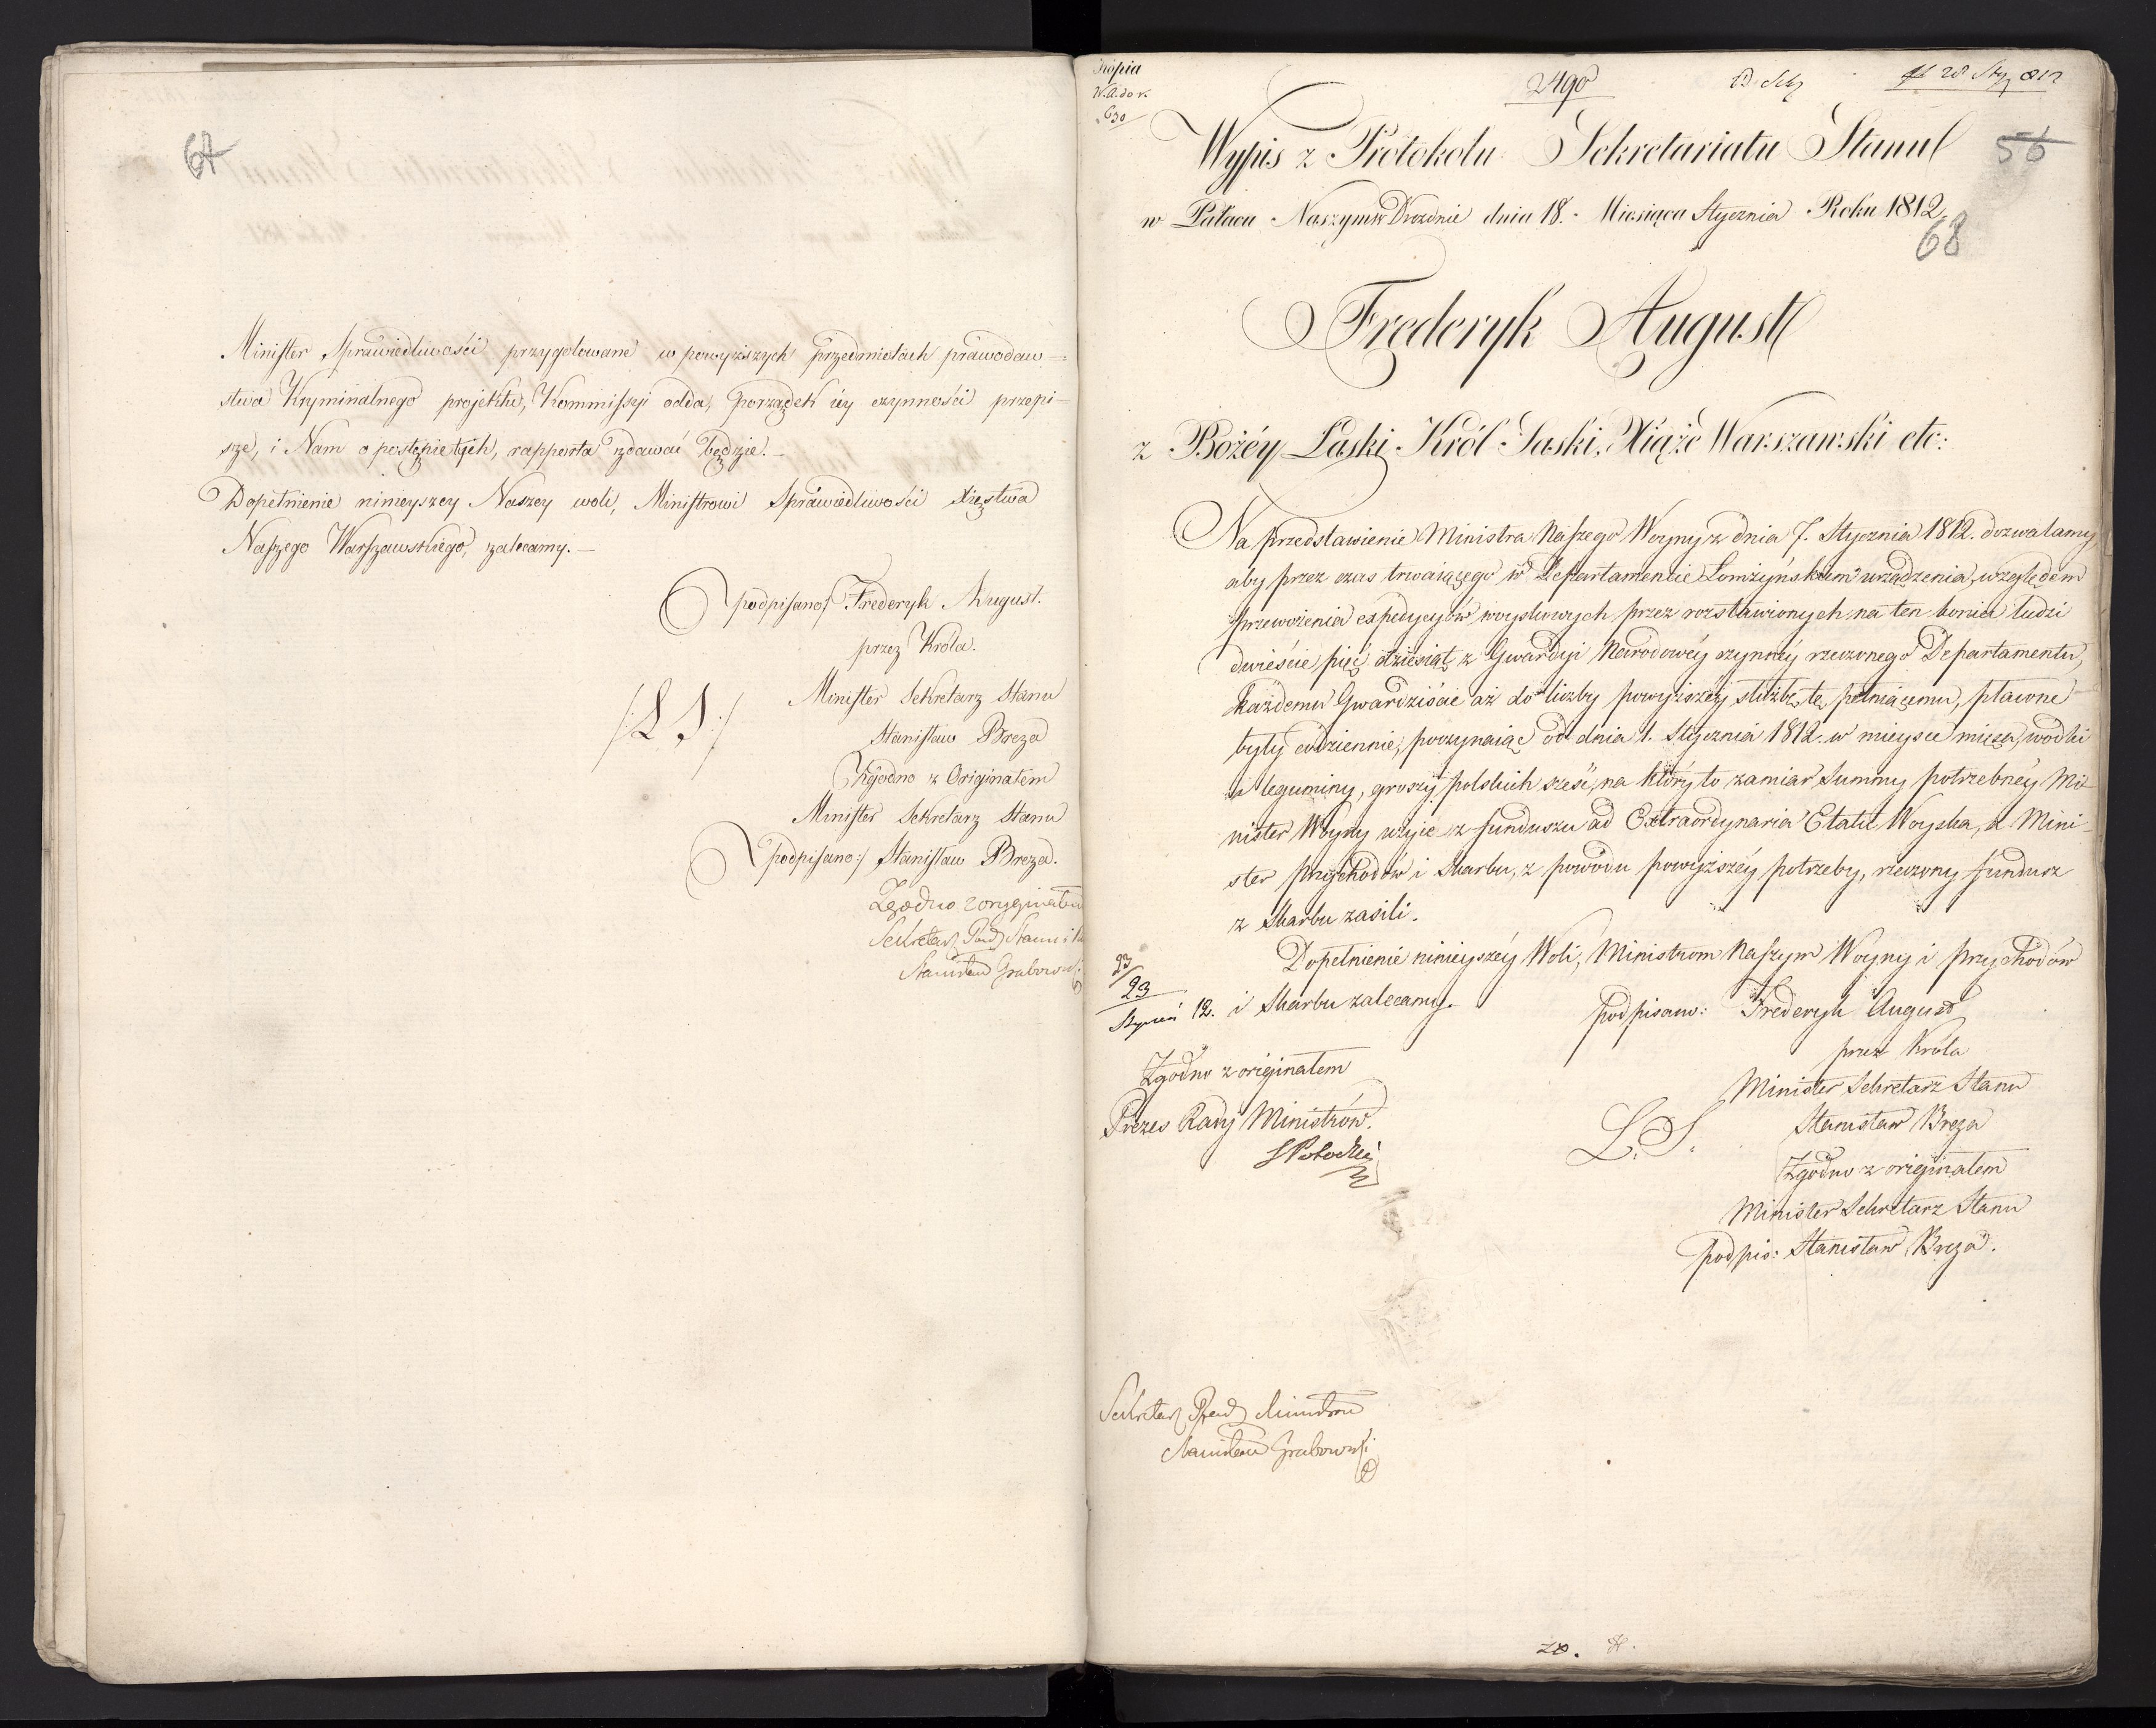 67
Minister Sprawiedliwości przygotowane w powyższych przedmiotach prawodaw=
stwa Kryminalnego projekta, Kommissyi odda, porządek iey czynności przepi=
sze, i Nam o postępie tych, rapporta zdawać będzie.—
Dopełnienie ninieyszey Naszey woli, Ministrowi Sprawiedliwości Xięstwa
Naszego Warszawskiego, zalecamy.—
podpisano/ Frederyk August.
przez Króla.
Minister Sekretarz Stanu
/:L.S:/
Stanisław Breza
Zgodno z Originałem
Minister Sekretarz Stanu
podpisano:/ Stanisław Breza.
Zgodno z oryginałem
Sekretarz Rady Stanu i
Stanisław Grabowski
Kopia
630
2490
d. 28 Sty 812
Wypis z Protokołu Sekretariatu Stanu
56
w Pałacu Naszym w Dreznie dnia 18. Miesiąca Stycznia Roku 1812.
68
Frederyk August
z Bożéy Łaski Król Saski, Xiąże Warszawski etc:
Na przedstawienie Ministra Naszego Woyny z dnia 7. Stycznia 1812. dozwalamy,
aby przez czas trwaiącego w Departamencie Łomżyńskim urządzenia, względem
przewożenia expedycyów woyskowych przez rozstawionych na ten koniec ludzi
dwieście pięćdziesiąt z Gwardyi Narodowéy czynnéy rzeczonego Departamentu,
każdemu Gwardziście aż do liczby powyższéy służbę tę pełniącemu, płacone
były codziennie, poczynaiąc od dnia 1. Stycznia 1812. w mieysce mięsa, wódki
i leguminy, groszy polskich sześć, na który to zamiar Summy potrzebnéy Mi=
nister Woyny użyie z funduszu ad Extraordynaria Etatu Woyska, a Mini=
ster Przychodów i Skarbu, z powodu powyższéy potrzeby, rzeczony fundusz
z Skarbu zasili.
Dopełnienie ninieyszéy Woli, Ministrom Naszym Woyny i Przychodów
23/23
Styczeń 12.
i Skarbu zalecamy.
podpisano: Frederyk August
przez Króla
Zgodno z originałem
Minister Sekretarz Stanu
Prezes Rady Ministrów.
L.S.
Stanisław Breza
S Potocki
Zgodno z originałem
Minister Sekretarz Stanu
podpis: Stanisław Breza.
Sekretarz Rady Ministrów
Stanisław Grabowski